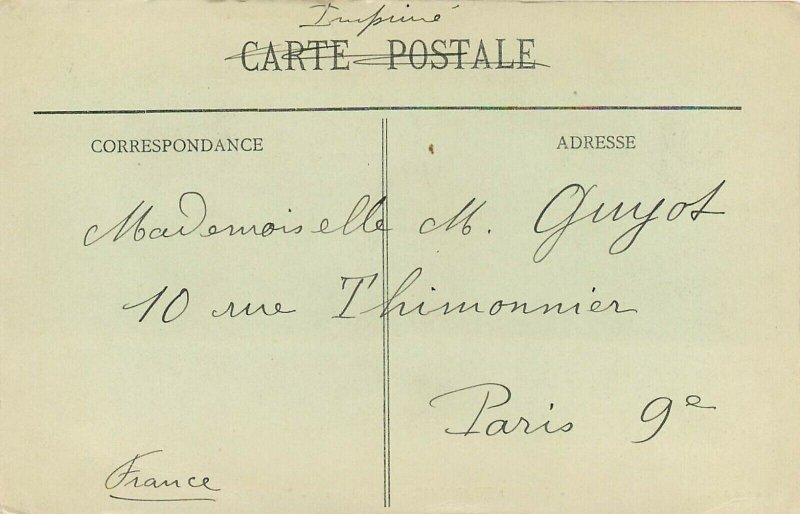 Imprimé
CARTE POSTALE
CORRESPONDANCE
ADRESSE
Mademoiselle M. Guyot
10 rue Thimonnier
Paris 9e
France